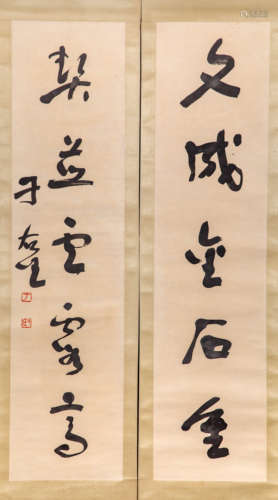 文成金石重
契並雲霞高
于右任